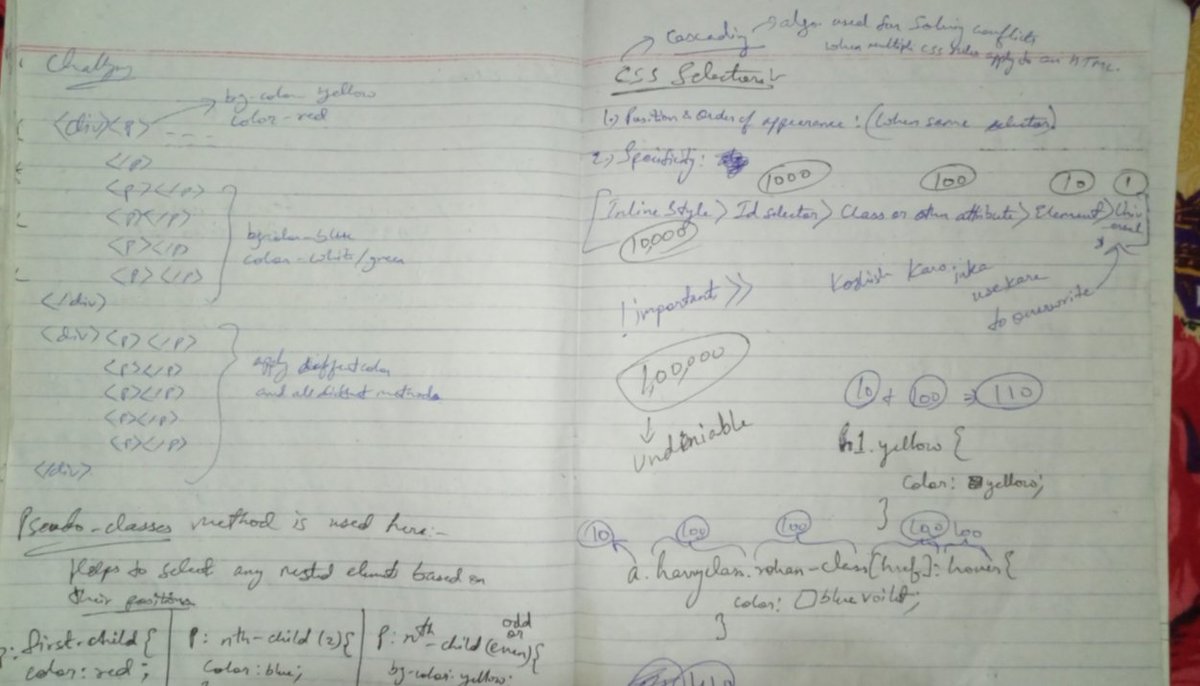 Challenge
bg-color-yellow
color-red
<div><p> ----
</p>
<p></p>
<p></p>
<p></p>
<p></p>
bg-color-blue
color-white/green
</div>
<div><p></p>
<p></p>
<p></p>
<p></p>
<p></p>
apply different color
and all distinct methods
</div>
Pseudo-classes method is used here:-
Helps to select any nested element based on
their positions
p:first-child{
color:red;
p:nth-child(2){
color:blue;
p:nth-child(odd or even){
bg-color:yellow;
→ Cascading → algo. used for solving conflicts
when multiple CSS rules apply to an HTML.
CSS Selectors
1.) Position & Order of appearance: (when same selector)
2.) Specificity:
1000 100 10 1
[Inline Style > Id selector > Class or other attribute > Element > Universal]
10,000
!important >>
Koshish Karo
use kare
to overwrite
1,00,000
undeniable
10 + 100 => 110
h1.yellow {
color: yellow;
}
10 100 100 100 100
a.harryclass.rohan-class[href]:hover{
color: blue
}